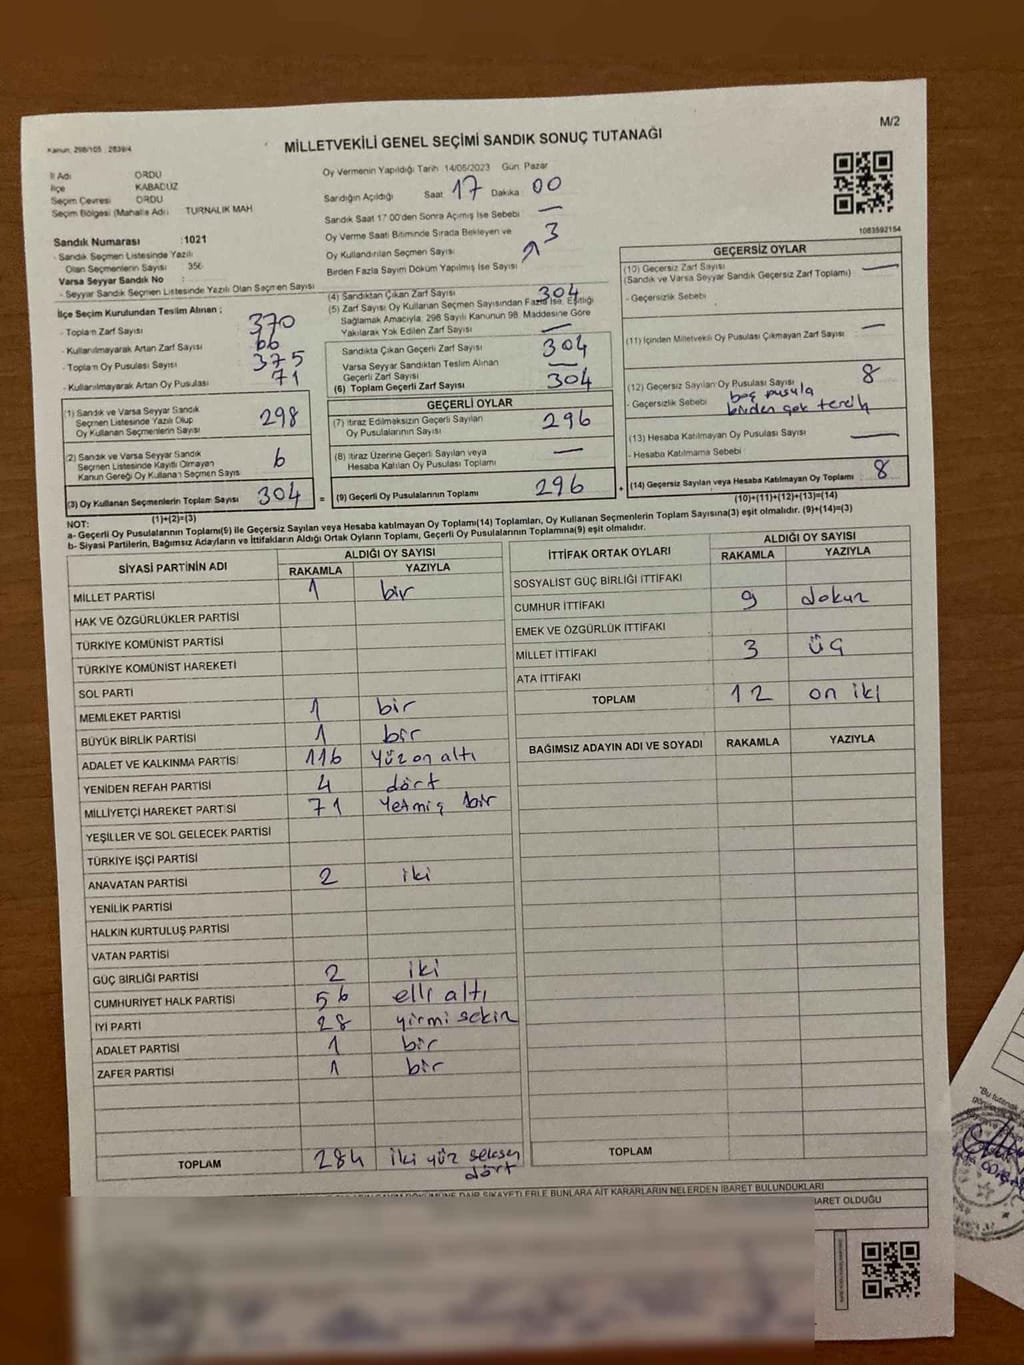 Kanun: 298/105 , 2839/4
MİLLETVEKİLİ GENEL SEÇİMİ SANDIK SONUÇ TUTANAĞI
M/2
İl Adı ORDU
İlçe KABADÜZ
Seçim Çevresi ORDU
Seçim Bölgesi (Mahalle Adı) TURNALIK MAH
Oy Vermenin Yapıldığı Tarih 14/05/2023 Gün Pazar
Sandığın Açıldığı Saat 17 Dakika 00
Sandık Saat 17:00'den Sonra Açılmış İse Sebebi —
Oy Verme Saati Bitiminde Sırada Bekleyen ve
Oy Kullandırılan Seçmen Sayısı 3
Birden Fazla Sayım Döküm Yapılmış İse Sayısı
1083592154
Sandık Numarası :1021
- Sandık Seçmen Listesinde Yazılı
Olan Seçmenlerin Sayısı : 356
Varsa Seyyar Sandık No :
- Seyyar Sandık Seçmen Listesinde Yazılı Olan Seçmen Sayısı
İlçe Seçim Kurulundan Teslim Alınan ;
- Toplam Zarf Sayısı 370
- Kullanılmayarak Artan Zarf Sayısı 66
- Toplam Oy Pusulası Sayısı 375
- Kullanılmayarak Artan Oy Pusulası 71
(1) Sandık ve Varsa Seyyar Sandık
Seçmen Listesinde Yazılı Olup
Oy Kullanan Seçmenlerin Sayısı 298
(2) Sandık ve Varsa Seyyar Sandık
Seçmen Listesinde Kayıtlı Olmayan
Kanun Gereği Oy Kullanan Seçmen Sayısı 6
(3) Oy Kullanan Seçmenlerin Toplam Sayısı 304
(1)+(2)=(3)
(4) Sandıktan Çıkan Zarf Sayısı 304
(5) Zarf Sayısı Oy Kullanan Seçmen Sayısından Fazla İse, Eşitliği
Sağlamak Amacıyla; 298 Sayılı Kanunun 98. Maddesine Göre
Yakılarak Yok Edilen Zarf Sayısı —
Sandıkta Çıkan Geçerli Zarf Sayısı 304
Varsa Seyyar Sandıktan Teslim Alınan
Geçerli Zarf Sayısı —
(6) Toplam Geçerli Zarf Sayısı 304
GEÇERLİ OYLAR
(7) İtiraz Edilmeksizin Geçerli Sayılan
Oy Pusulalarının Sayısı 296
(8) İtiraz Üzerine Geçerli Sayılan veya
Hesaba Katılan Oy Pusulası Toplamı —
= (9) Geçerli Oy Pusulalarının Toplamı 296
GEÇERSİZ OYLAR
(10) Geçersiz Zarf Sayısı —
(Sandık ve Varsa Seyyar Sandık Geçersiz Zarf Toplamı)
- Geçersizlik Sebebi
(11) İçinden Milletvekili Oy Pusulası Çıkmayan Zarf Sayısı —
(12) Geçersiz Sayılan Oy Pusulası Sayısı 8
- Geçersizlik Sebebi boş pusula
birden çok tercih
(13) Hesaba Katılmayan Oy Pusulası Sayısı —
- Hesaba Katılmama Sebebi
+ (14) Geçersiz Sayılan veya Hesaba Katılmayan Oy Toplamı 8
(10)+(11)+(12)+(13)=(14)
NOT:
a- Geçerli Oy Pusulalarının Toplamı(9) ile Geçersiz Sayılan veya Hesaba katılmayan Oy Toplamı(14) Toplamları, Oy Kullanan Seçmenlerin Toplam Sayısına(3) eşit olmalıdır. (9)+(14)=(3)
b- Siyasi Partilerin, Bağımsız Adayların ve İttifakların Aldığı Ortak Oyların Toplamı, Geçerli Oy Pusulalarının Toplamına(9) eşit olmalıdır.
SİYASİ PARTİNİN ADI ALDIĞI OY SAYISI
RAKAMLA YAZIYLA
MİLLET PARTİSİ 1 bir
HAK VE ÖZGÜRLÜKLER PARTİSİ
TÜRKİYE KOMÜNİST PARTİSİ
TÜRKİYE KOMÜNİST HAREKETİ
SOL PARTİ
MEMLEKET PARTİSİ 1 bir
BÜYÜK BİRLİK PARTİSİ 1 bir
ADALET VE KALKINMA PARTİSİ 116 yüz on altı
YENİDEN REFAH PARTİSİ 4 dört
MİLLİYETÇİ HAREKET PARTİSİ 71 Yetmiş bir
YEŞİLLER VE SOL GELECEK PARTİSİ
TÜRKİYE İŞÇİ PARTİSİ
ANAVATAN PARTİSİ 2 iki
YENİLİK PARTİSİ
HALKIN KURTULUŞ PARTİSİ
VATAN PARTİSİ
GÜÇ BİRLİĞİ PARTİSİ 2 iki
CUMHURİYET HALK PARTİSİ 56 elli altı
İYİ PARTİ 28 yirmi sekiz
ADALET PARTİSİ 1 bir
ZAFER PARTİSİ 1 bir
TOPLAM 284 iki yüz seksen
dört
İTTİFAK ORTAK OYLARI ALDIĞI OY SAYISI
RAKAMLA YAZIYLA
SOSYALİST GÜÇ BİRLİĞİ İTTİFAKI
CUMHUR İTTİFAKI 9 dokuz
EMEK VE ÖZGÜRLÜK İTTİFAKI
MİLLET İTTİFAKI 3 üç
ATA İTTİFAKI
TOPLAM 12 on iki
BAĞIMSIZ ADAYIN ADI VE SOYADI RAKAMLA YAZIYLA
TOPLAM
SAYIM DÖKÜMÜNE DAİR ŞİKAYETLERLE BUNLARA AİT KARARLARIN NELERDEN İBARET BULUNDUKLARI
İBARET OLDUĞU
"Bu tutanak